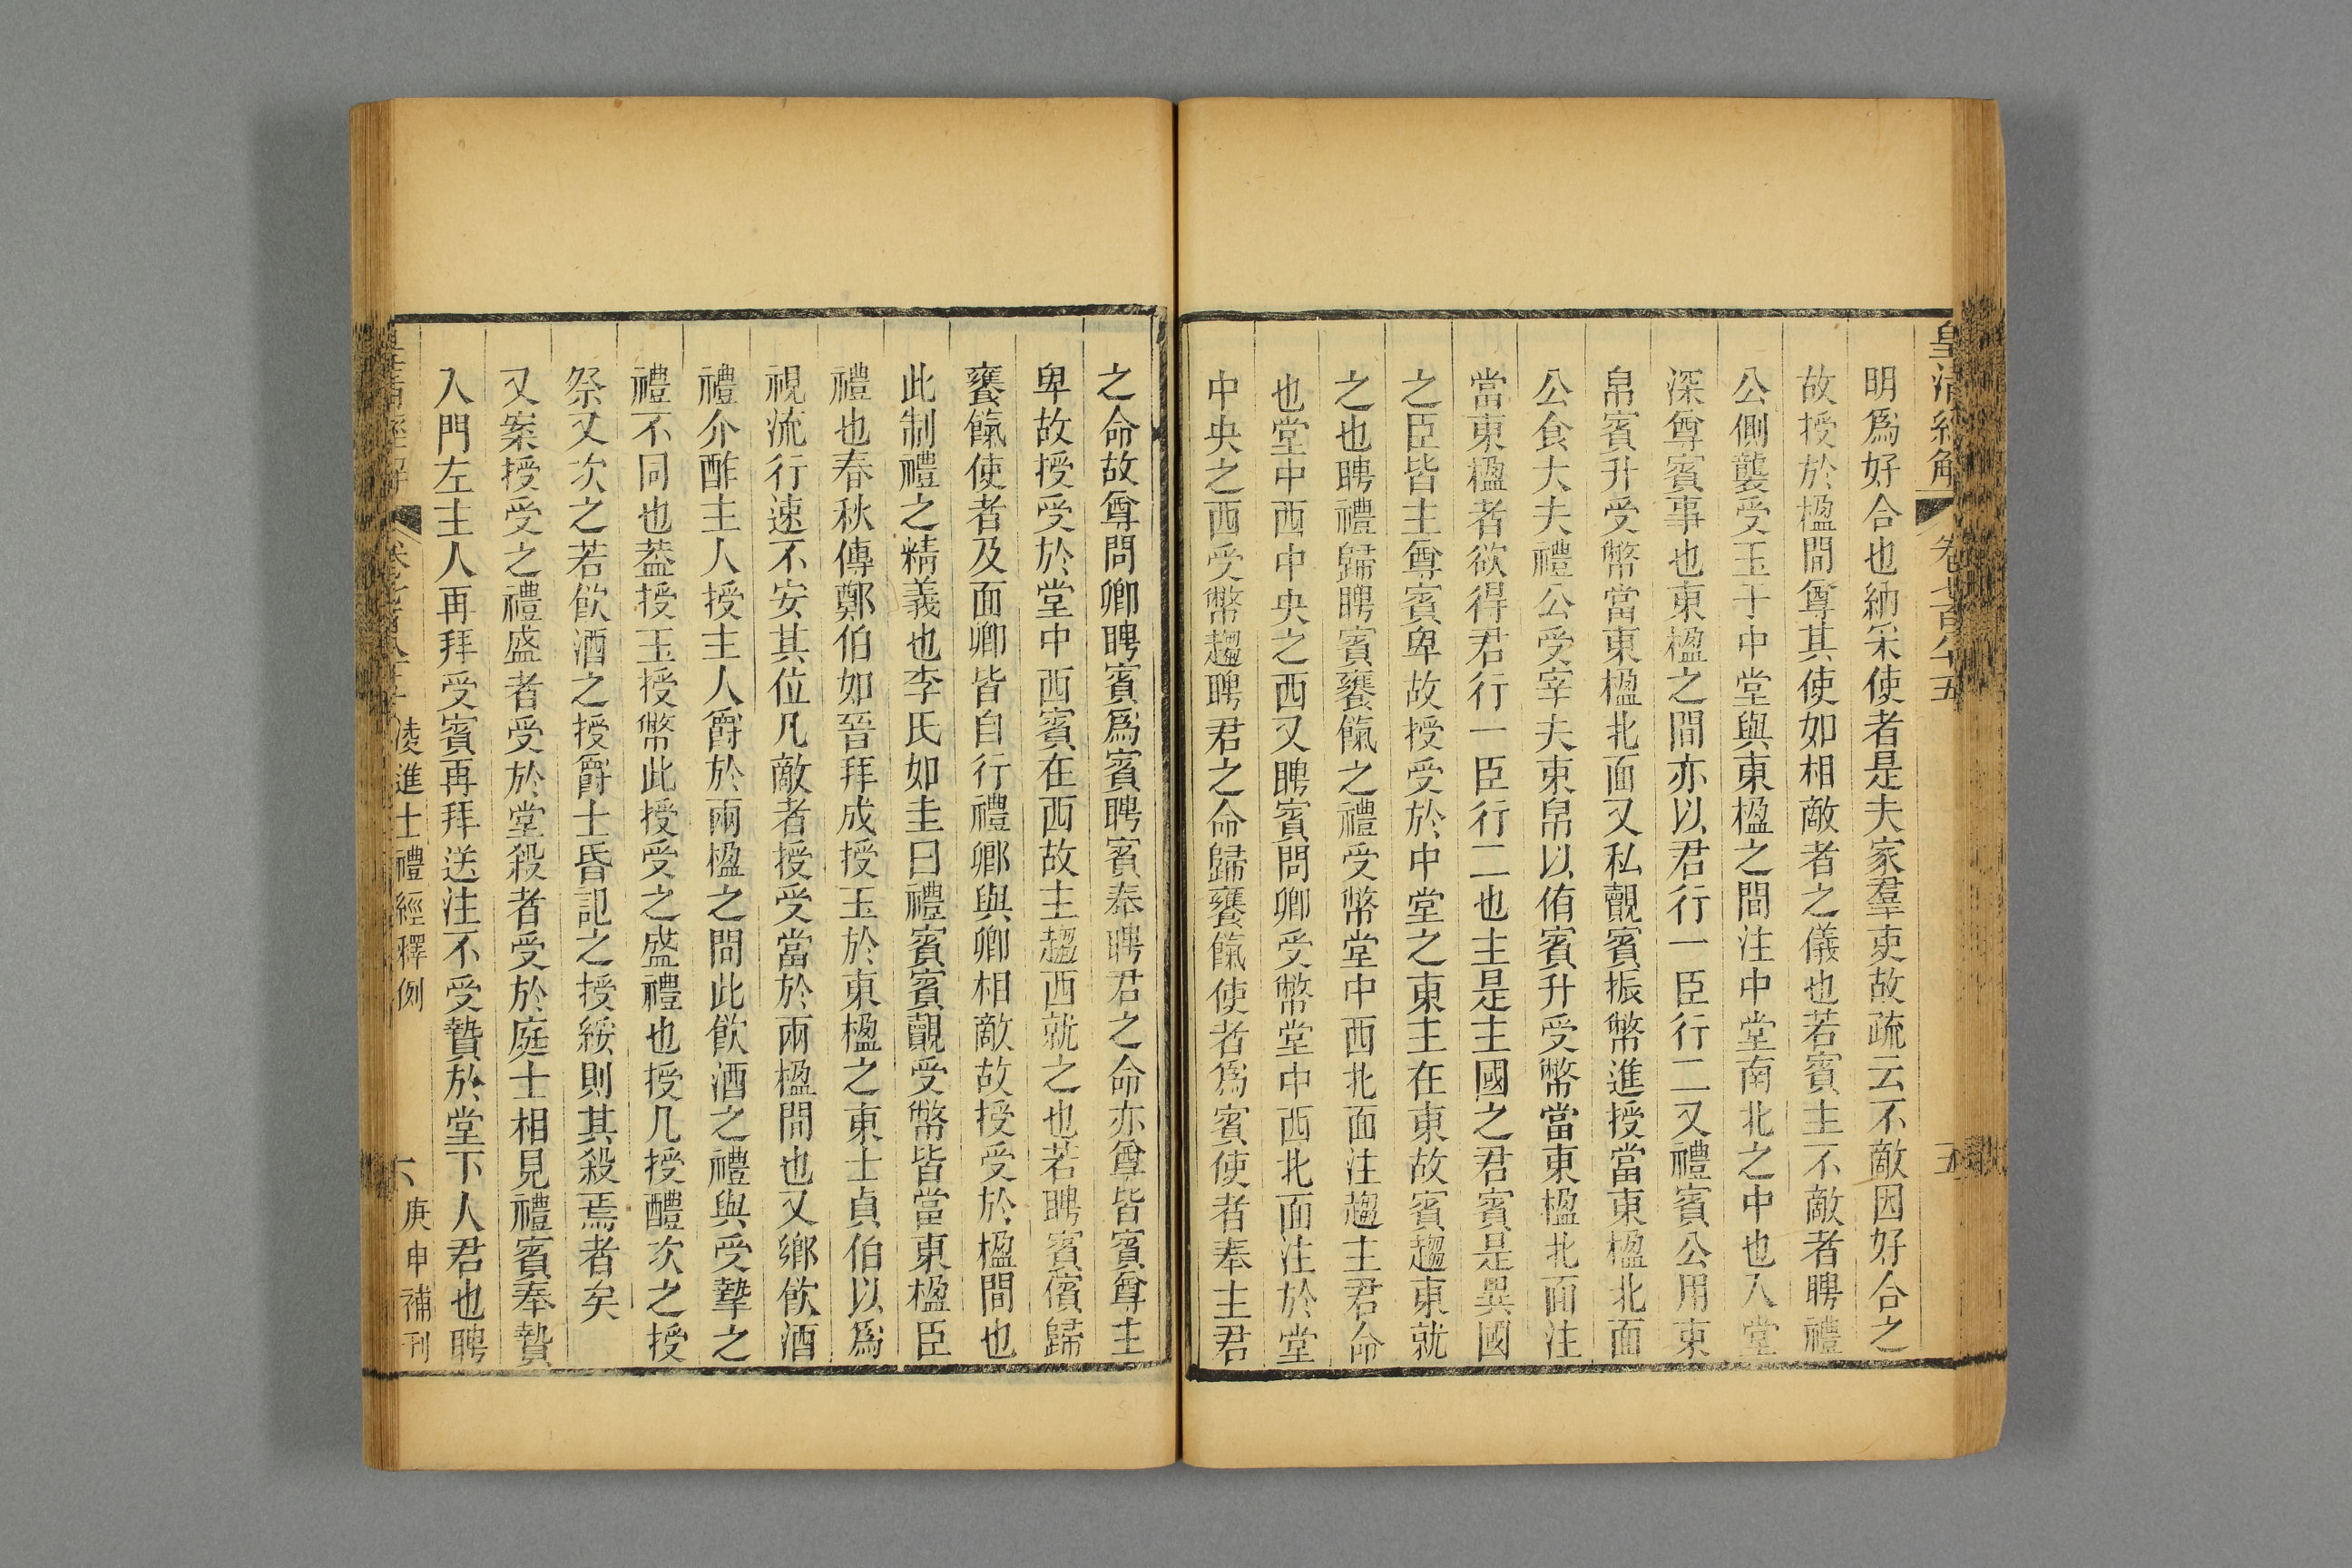 皇清經解 卷七百八十五 五
明爲好合也納采使者是夫家羣吏故疏云不敵因好合之
故授於楹間尊其使如相敵者之儀也若賓主不敵者聘禮
公側襲受玉于中堂與東楹之間注中堂南北之中也入堂
深尊賓事也東楹之間亦以君行一臣行二又禮賓公用束
帛賓升受幣當東楹北面又私覿賓振幣進授當東楹北面
公食大夫禮公受宰夫束帛以侑賓升受幣當東楹北面注
當東楹者欲得君行一臣行二也主是主國之君賓是異國
之臣皆主尊賓卑故授受於中堂之東主在東故賓趨東就
之也聘禮歸聘賓饔餼之禮受幣堂中西北面注趨主君命
也堂中西中央之西又聘賓問卿受幣堂中西北面注於堂
中央之西受幣趨聘君之命歸饔餼使者爲賓使者奉主君
之命故尊問卿聘賓爲賓聘賓奉聘君之命亦尊皆賓尊主
卑故授受於堂中西賓在西故主趨西就之也若聘賓儐歸
饔餼使者及面卿皆自行禮卿與卿相敵故授受於楹間也
此制禮之精義也李氏如圭曰禮賓賓覿受幣皆當東楹臣
禮也春秋傳鄭伯如晉拜成授玉於東楹之東士貞伯以爲
視流行速不安其位凡敵者授受當於兩楹間也又鄉飲酒
禮介酢主人授主人爵於兩楹之間此飲酒之禮與受摯之
禮不同也蓋授玉授幣此授受之盛禮也授几授醴次之授
祭又次之若飲酒之授爵士昏記之授綏則其殺焉者矣
又案授受之禮盛者受於堂殺者受於庭士相見禮賓奉贄
入門左主人再拜受賓再拜送注不受贄於堂下人君也聘
皇清經解 卷七百八十五 凌進士禮經釋例 六 庚申補刊